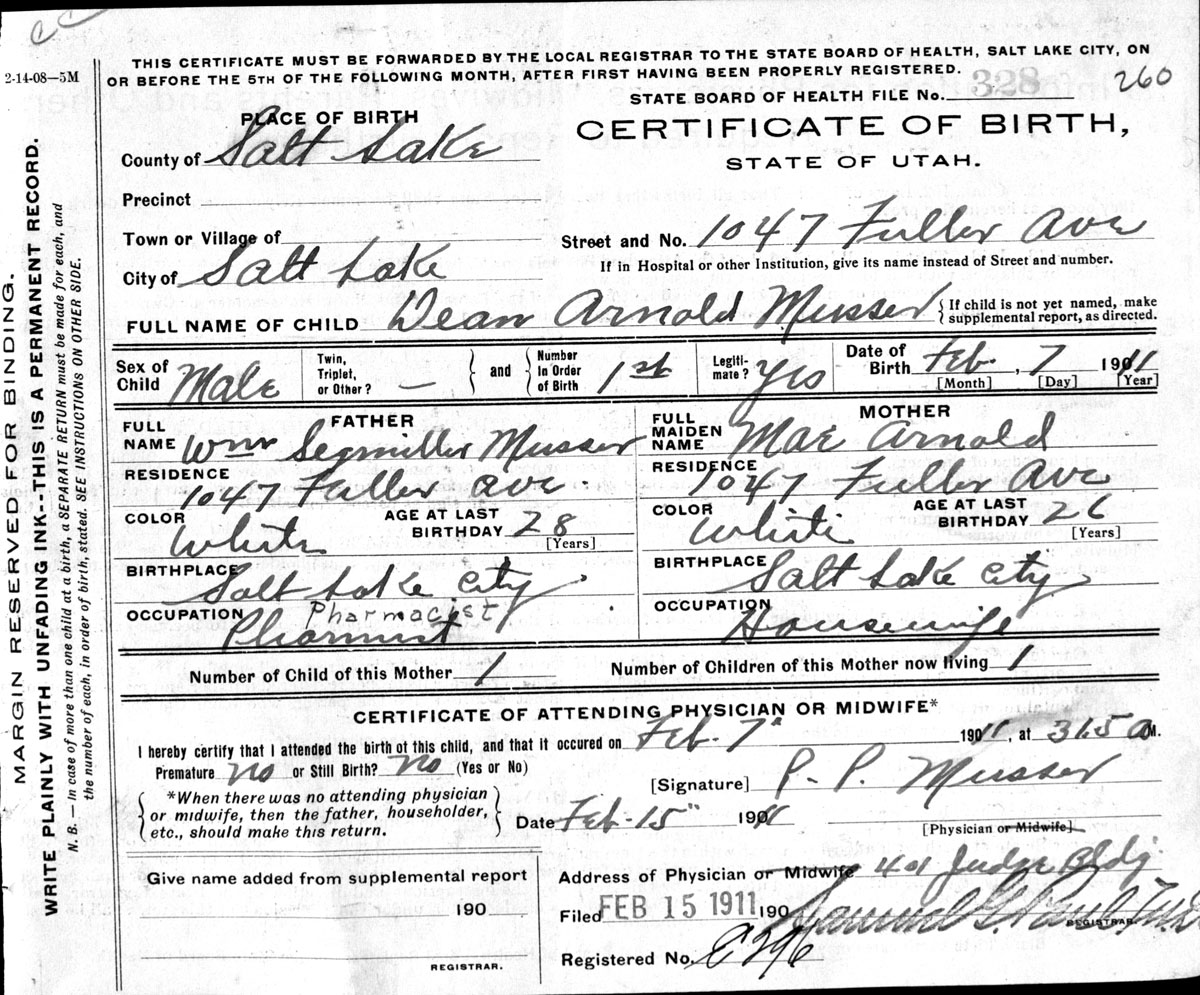 2-14-08—5M
THIS CERTIFICATE MUST BE FORWARDED BY THE LOCAL REGISTRAR TO THE STATE BOARD OF HEALTH, SALT LAKE CITY, ON
OR BEFORE THE 5TH OF THE FOLLOWING MONTH, AFTER FIRST HAVING BEEN PROPERLY REGISTERED.
STATE BOARD OF HEALTH FILE No. 328 260
CERTIFICATE OF BIRTH,
STATE OF UTAH.
MARGIN RESERVED FOR BINDING.
WRITE PLAINLY WITH UNFADING INK--THIS IS A PERMANENT RECORD.
N. B. — In case of more than one child at a birth, a SEPARATE RETURN must be made for each, and
the number of each, in order of birth, stated. SEE INSTRUCTIONS ON OTHER SIDE.
PLACE OF BIRTH
County of Salt Lake
Precinct
Town or Village of
Street and No. 1047 Fuller Ave
City of Salt Lake
If in Hospital or other Institution, give its name instead of Street and number.
FULL NAME OF CHILD Dean Arnold Musser { If child is not yet named, make
supplemental report, as directed.
Sex of Child Male Twin, Triplet, or Other? — } and { Number In Order of Birth 1st Legiti-mate? Yes Date of Birth Feb. , 7 1911
[Month] [Day] [Year]
FATHER
FULL NAME Wm Segmiller Musser
RESIDENCE 1047 Fuller Ave.
COLOR White AGE AT LAST BIRTHDAY 28 [Years]
BIRTHPLACE Salt Lake City
OCCUPATION Pharmacist
Pharmist
MOTHER
FULL MAIDEN NAME Mae Arnold
RESIDENCE 1047 Fuller Ave
COLOR White AGE AT LAST BIRTHDAY 26 [Years]
BIRTHPLACE Salt Lake City
OCCUPATION Housewife
Number of Child of this Mother 1 Number of Children of this Mother now living 1
CERTIFICATE OF ATTENDING PHYSICIAN OR MIDWIFE*
I hereby certify that I attended the birth of this child, and that it occured on Feb. 7" 1911, at 315 a M.
Premature no or Still Birth? no (Yes or No)
[Signature] P. P. Musser
{ *When there was no attending physician
or midwife, then the father, householder,
etc., should make this return. }
Date Feb-15" 1911
[Physician or Midwife]
Give name added from supplemental report
190
REGISTRAR.
Address of Physician or Midwife 401 Judge Bldg.
Filed FEB 15 1911 190 Samuel G. Paul
REGISTRAR.
Registered No.